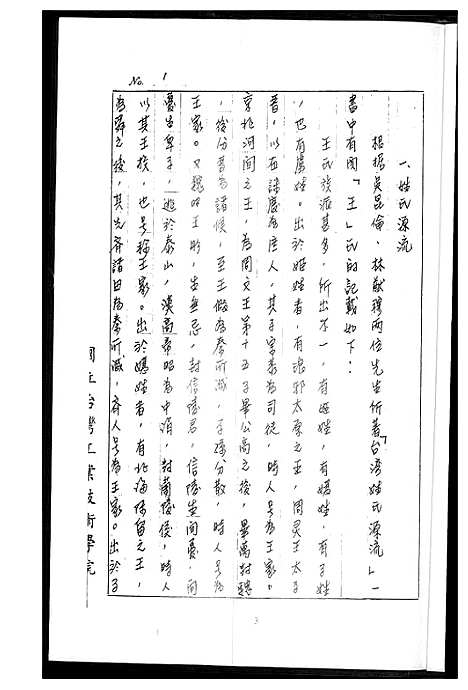 No. 1
一、姓氏源流
根據吳昆倫、林猷穆兩位先生所著「台湾姓氏源流」一
書中有関「王」氏的記載如下：
王氏族派甚多，所出不一，有姬姓，有媯姓，有子姓
，也有虜姓。出於姬姓者，有琅邪太原之王，周灵王太子
晋，以直諫廢為庶人，其子宗恭為司徒，時人号為王家。
京兆河間之王，為周文王第十五子畢公高之後，畢萬封魏
，後分晋為諸侯，至王假為秦所滅，子孫分散，時人号為
王家。又魏昭王彤，生無忌，封信陵君，信陵生間憂，間
憂生卑子，逃於泰山，漢高帝召為中涓，封蘭陵侯，時人
以其王族，也号稱王家。出於媯姓者，有北海陳留之王，
為舜之後，其先齊諸田為秦所滅，齊人号為王家。出於子
國立台灣工業技術學院
3